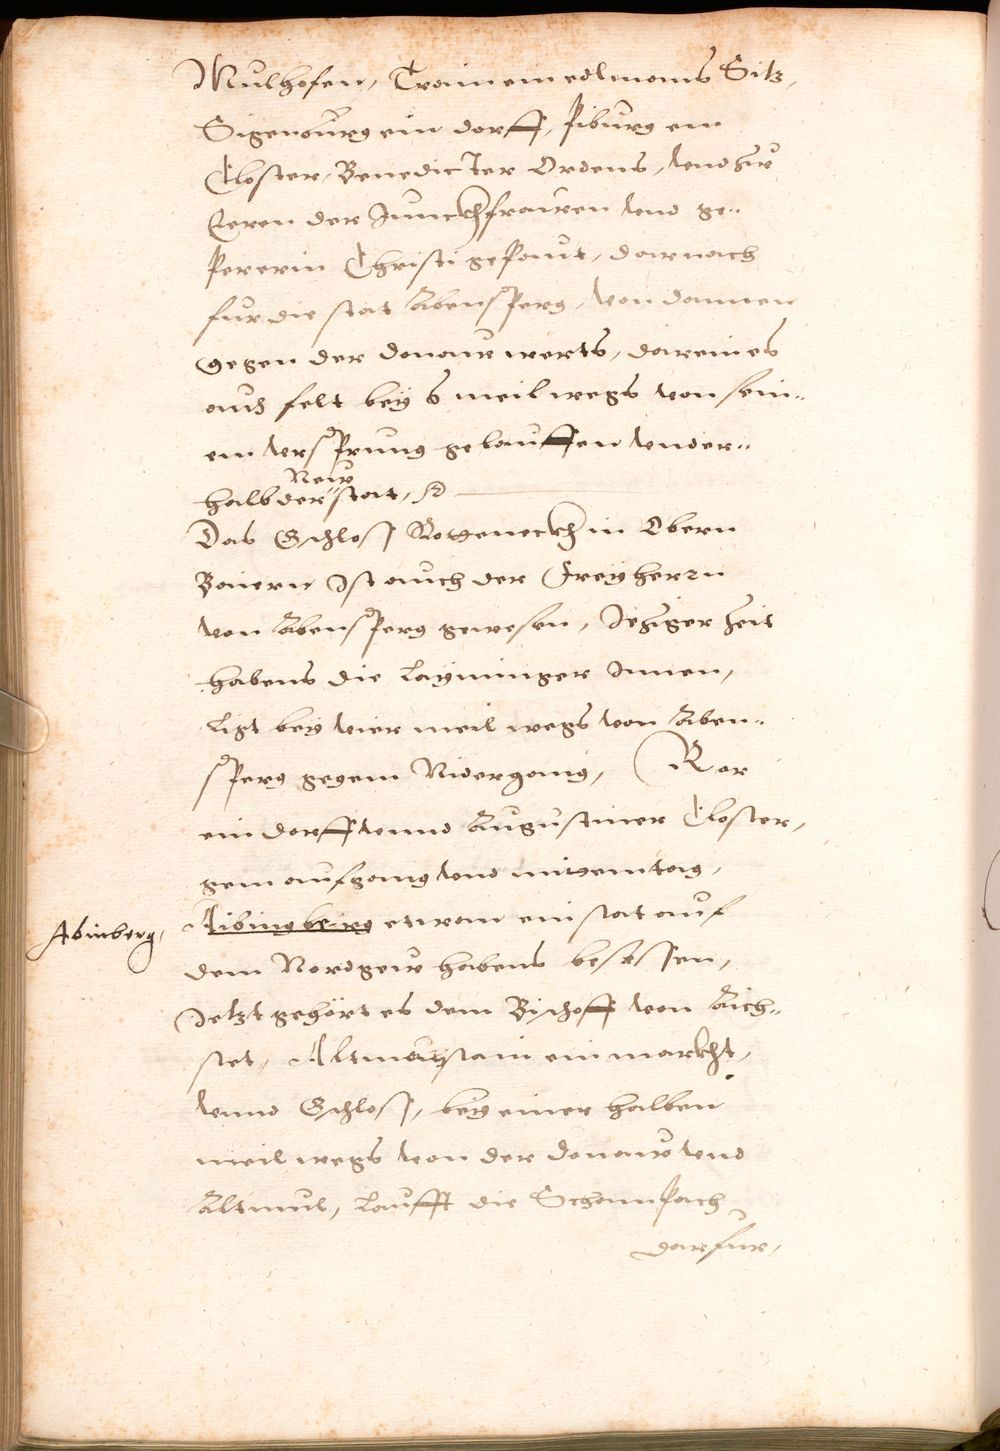 Mulhofen, Train ein edlmans Sitz,
Sigenburg ein dorff, Piburg ein
Closter, Benedicter Ordens, vnd zu
Eeren der Junckhfrauen vnd ge¨
pererin Christi gepaut, darnach
fur die stat Abensperg, von dannen
gegen der Donauw werts, darein es
auß felt bey 6 meil wegs von sein¨
em vrsprung gelauffen vnder¨
halb der Neuwstat,
Das Schloß Rottenneckh in Obern
Baiern Ist auch der Freyherrn
von Abensperg gewesen, Jetziger Zeit
habens die Layminger Innen,
Ligt bey vier meil wegs von Aben¨
sperg gegem Nidergang, Ror
ein dorff vnnd Augustiner Closter,
gem aufgang vnd mittemtag,
Abinberg,
Aibingberg etwan ein stat auf
dem Nordgew habens besessen,
Jetzt gehört es dem Bischoff von Aich¨
stet, Altmaystain ein markht,
vnnd Schloß, bey einer halben
meil wegs von der Donauw vnd
Altmul, laufft die Schampach
darfur,